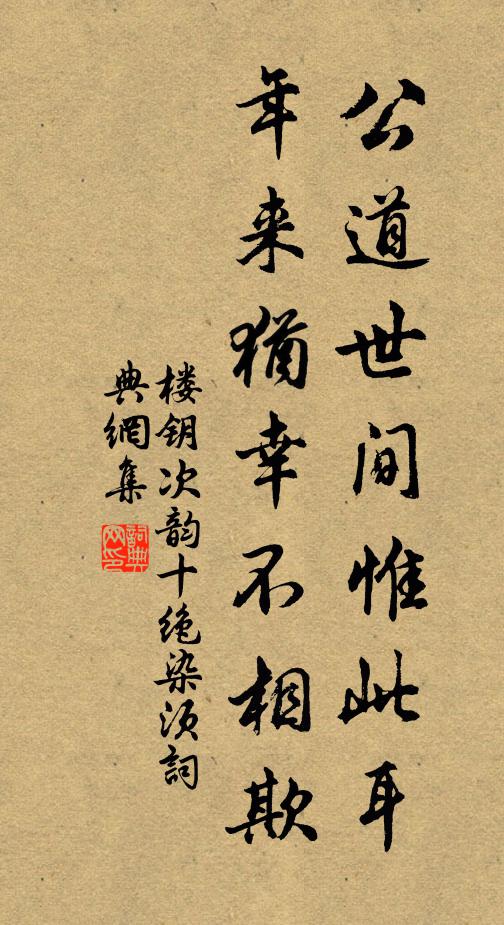 公道世间惟此耳
年来犹幸不相欺
楼钥次韵十绝染须词
典网集
词典网印